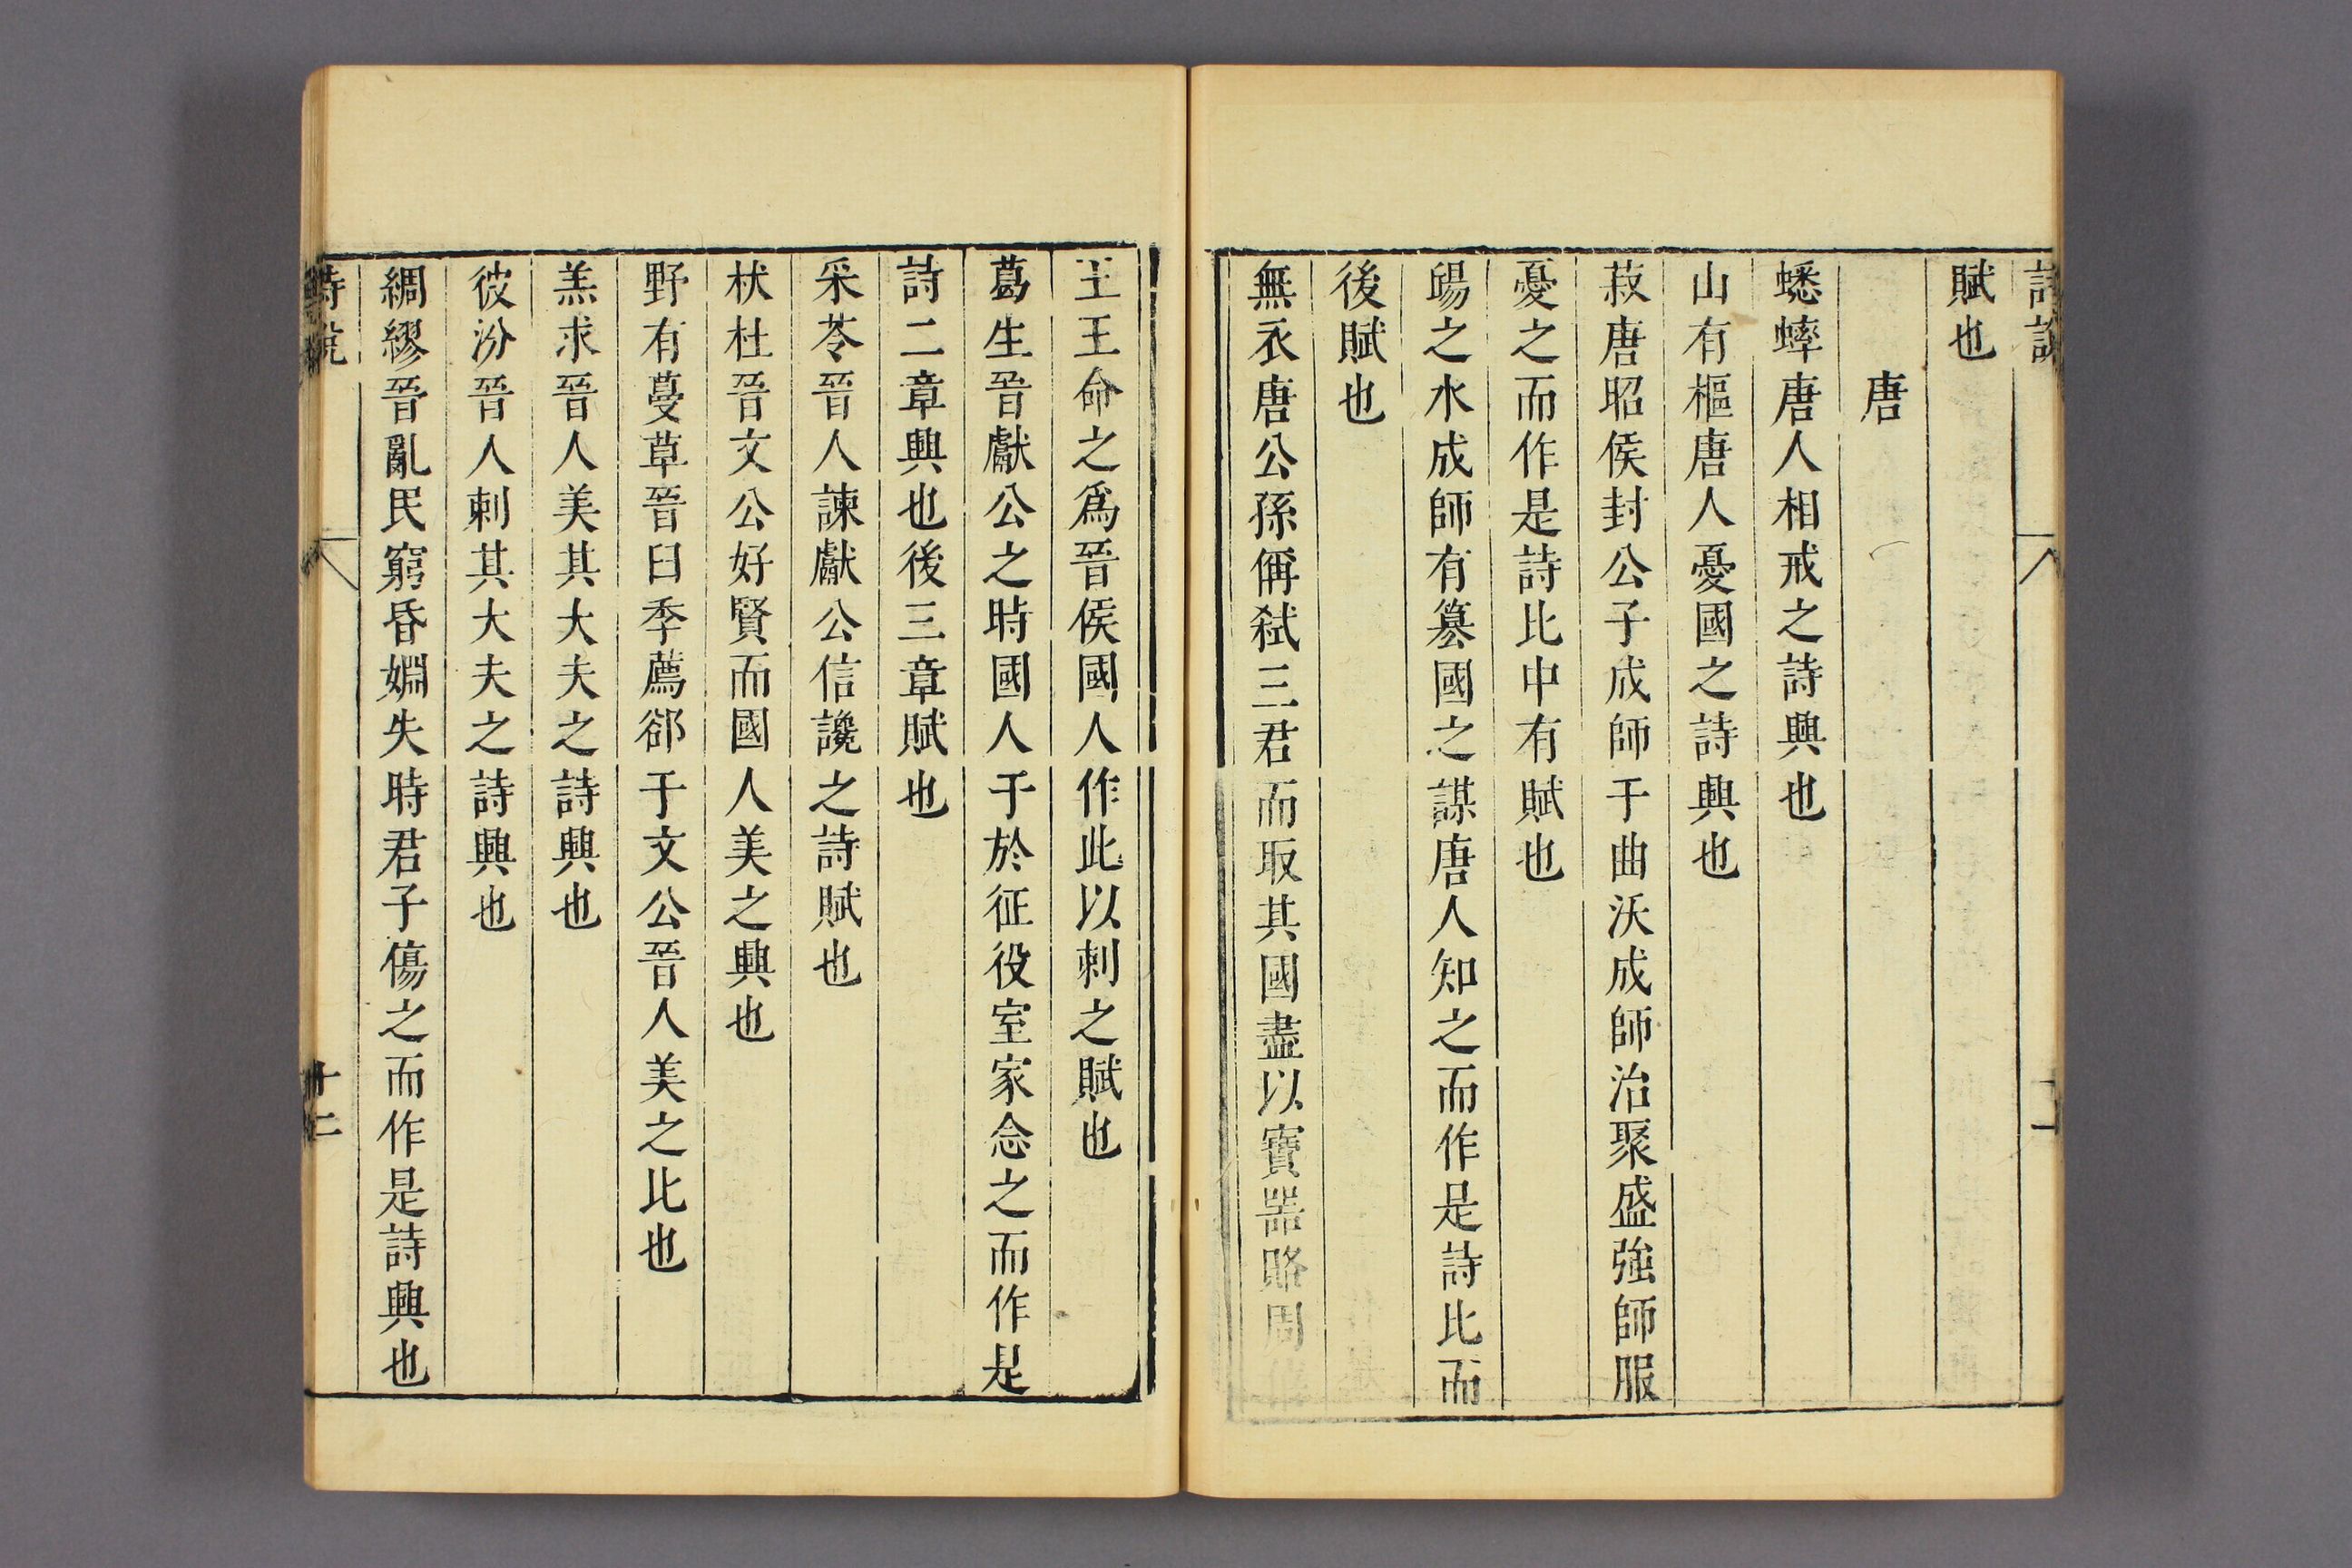 賦也
唐
蟋蟀唐人相戒之詩興也
山有樞唐人憂國之詩興也
菽唐昭侯封公子成師于曲沃成師治聚盛強師服
憂之而作是詩比中有賦也
昜阝之水成師有篡國之謀唐人知之而作是詩比而
後賦也
無衣唐公孫偁弒三君而取其國盡以寶器賂周
王王命之爲晉侯國人作此以刺之賦也
葛生晉獻公之時國人于於征役室家念之而作是
詩二章興也後三章賦也
采苓晉人諫獻公信讒之詩賦也
杕杜晉文公好賢而國人美之興也
野有蔓草晉臼季薦郤于文公晉人美之比也
羔求晉人美其大夫之詩興也
彼汾晉人刺其大夫之詩興也
綢繆晉亂民窮昏婣失時君子傷之而作是詩興也
詩說
十二